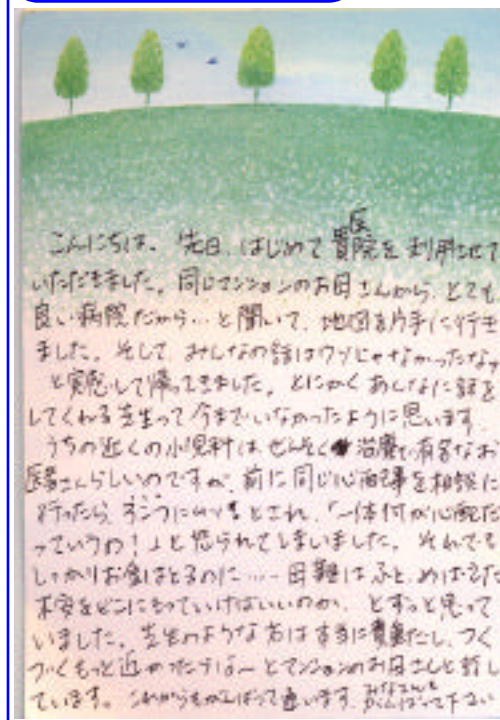 こんにちは。先日、はじめて貴医院を利用させて
いただきました。同じマンションのお母さんから、とても
良い病院だから…と聞いて、地図を片手に行き
ました。そして、みんなの話はウソじゃなかったなァ
と実感して帰ってきました。とにかくあんなに話を
してくれる先生って今までいなかったように思います。
うちの近くの小児科はぜんそく治療で有名なお
医者さんらしいのですが、前に同じ心配事を相談に
行ったら、され、「一体何が心配だ
っていうの!」と怒られてしまいました。それでも
しっかりお金はとるのに…
不安をどこにもっていけばいいのか、とずっと思って
いました。先生のような方は本当に貴重だし、つく
づくもっと近かったらなぁ〜とマンションのお母さんと話し
ています。これからもがんばって通います。みなさんもがんばって下さい